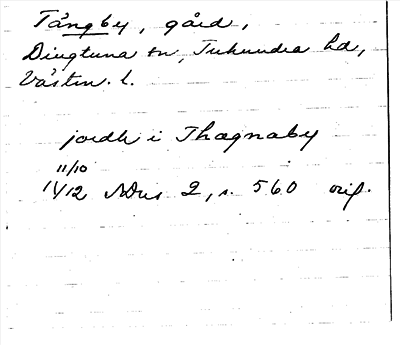 Tångby, gård,
Dingtuna sn, Tuhundra hd,
Västm. l.
jordh i Thognaby
11/10
1412 SDns 2, s. 560 orig.